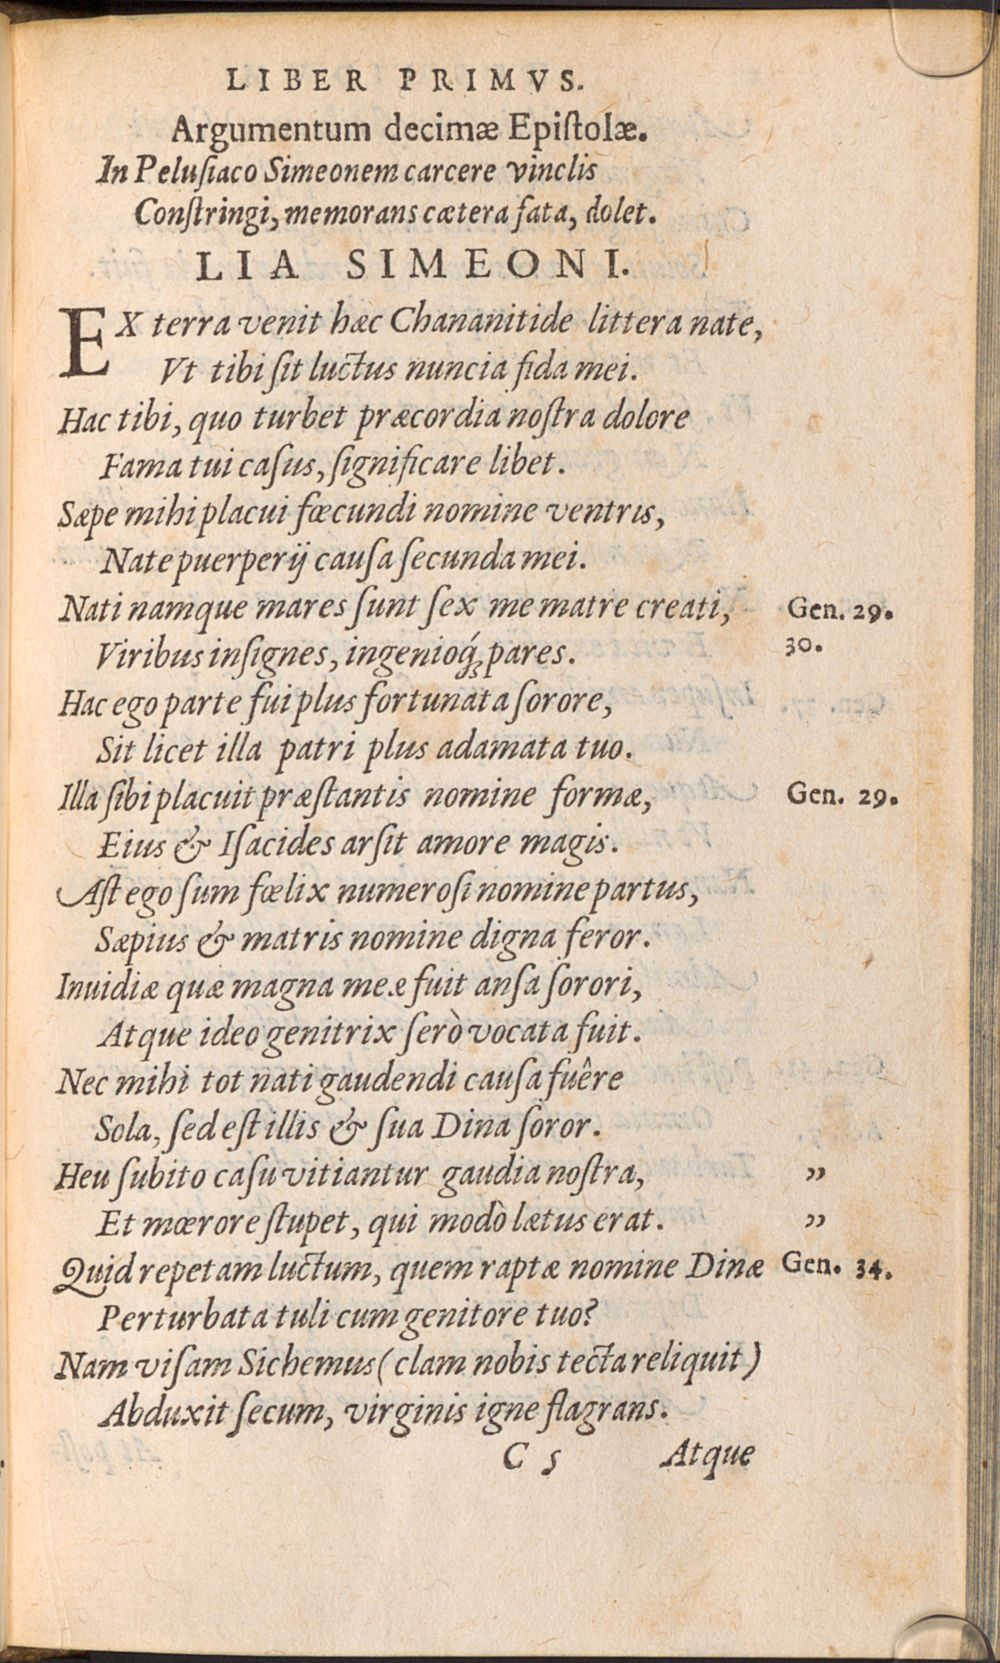 LIBER PRIMVS.
Argumentum decimæ Epiſtolæ.
In Peluſiaco Simeonem carcere vinclis
Conſtringi, memorans cætera fata, dolet.
LIA SIMEONI.
EX terra venit hæc Chananitide littera nate,
Vt tibi ſit luctus nuncia fida mei.
Hac tibi, quo turbet præcordia noſtra dolore
Fama tui caſus, ſignificare libet.
Sæpe mihi placui fœcundi nomine ventris,
Nate puerperij cauſa ſecunda mei.
Nati namque mares ſunt ſex me matre creati, Gen. 29.
Viribus inſignes, ingenioq́ꝫ pares. 30.
Hac ego parte fui plus fortunata ſorore,
Sit licet illa patri plus adamata tuo.
Illa ſibi placuit præſtantis nomine formæ, Gen. 29.
Eius & Iſacides arſit amore magis.
Aſt ego ſum fœlix numeroſi nomine partus,
Sæpius & matris nomine digna feror.
Inuidiæ quæ magna meæ fuit anſa ſorori,
Atque ideo genitrix ſerò vocata fuit.
Nec mihi tot nati gaudendi cauſa fuêre
Sola, ſed eſt illis & ſua Dina ſoror.
Heu ſubito caſu vitiantur gaudia noſtra, ”
Et mœrore ſtupet, qui modò lætus erat. ”
Quid repetam luctum, quem raptæ nomine Dinæ Gen. 34.
Perturbata tuli cum genitore tuo?
Nam viſam Sichemus (clam nobis tecta reliquit)
Abduxit ſecum, virginis igne flagrans.
C 5 Atque